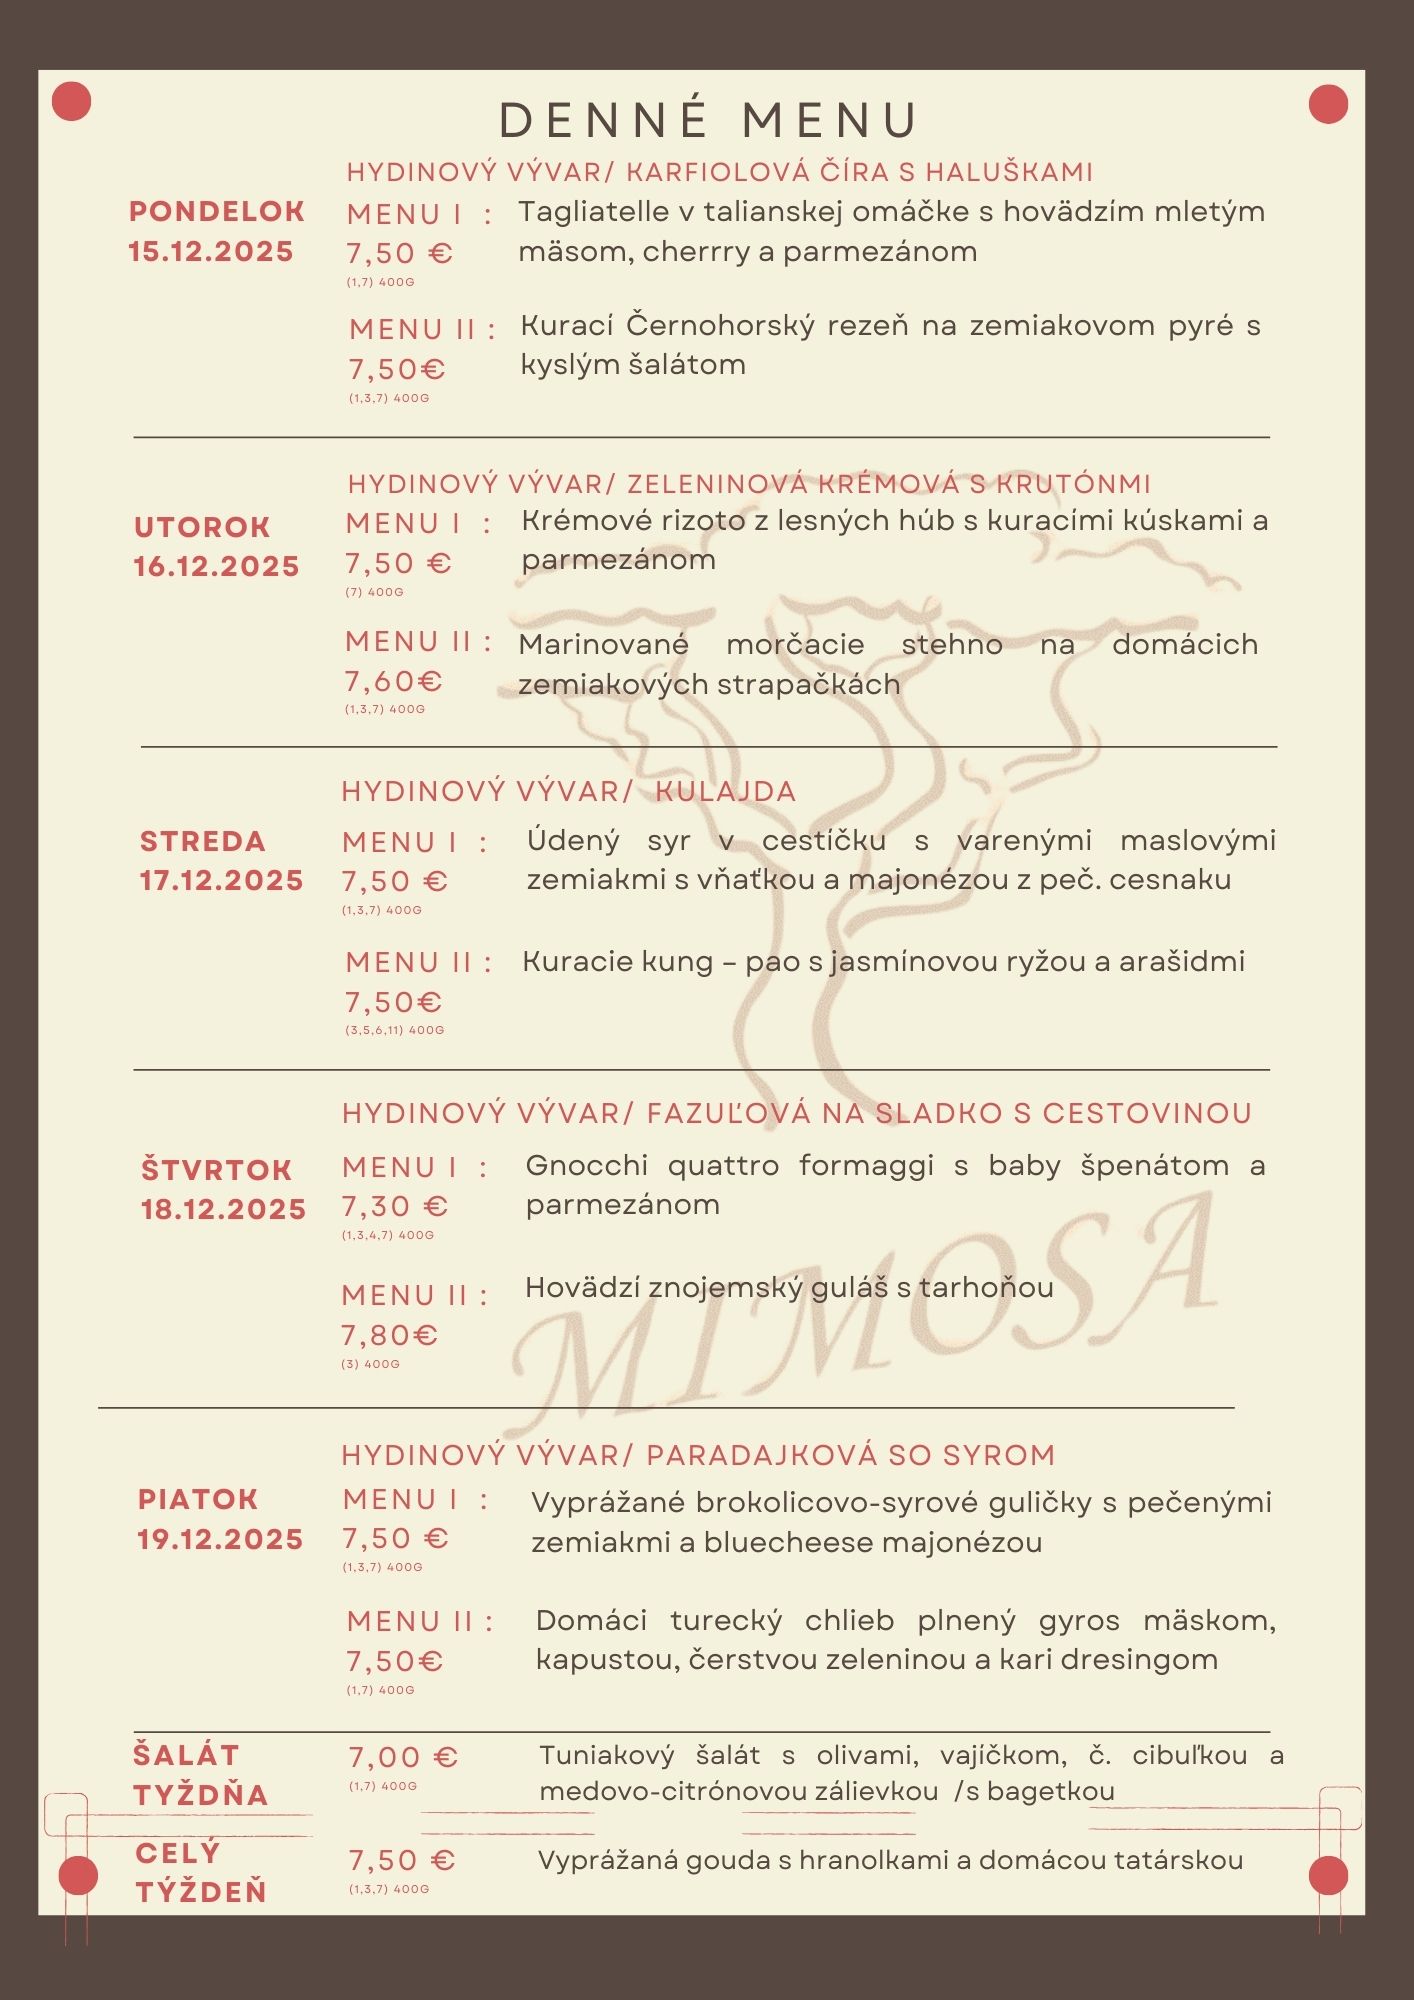 DENNÉ MENU
HYDINOVÝ VÝVAR/ KARFIOLOVÁ ČÍRA S HALUŠKAMI
PONDELOK
15.12.2025
MENU I :
7,50 €
(1,7) 400G
Tagliatelle v talianskej omáčke s hovädzím mletým
mäsom, cherrry a parmezánom
MENU II :
7,50€
(1,3,7) 400G
Kurací Černohorský rezeň na zemiakovom pyré s
kyslým šalátom
HYDINOVÝ VÝVAR/ ZELENINOVÁ KRÉMOVÁ S KRUTÓNMI
UTOROK
16.12.2025
MENU I :
7,50 €
(7) 400G
Krémové rizoto z lesných húb s kuracími kúskami a
parmezánom
MENU II :
7,60€
(1,3,7) 400G
Marinované morčacie stehno na domácich
zemiakových strapačkách
HYDINOVÝ VÝVAR/ KULAJDA
STREDA
17.12.2025
MENU I :
7,50 €
(1,3,7) 400G
Údený syr v cestíčku s varenými maslovými
zemiakmi s vňaťkou a majonézou z peč. cesnaku
MENU II :
7,50€
(3,5,6,11) 400G
Kuracie kung – pao s jasmínovou ryžou a arašidmi
HYDINOVÝ VÝVAR/ FAZUĽOVÁ NA SLADKO S CESTOVINOU
ŠTVRTOK
18.12.2025
MENU I :
7,30 €
(1,3,4,7) 400G
Gnocchi quattro formaggi s baby špenátom a
parmezánom
MENU II :
7,80€
(3) 400G
Hovädzí znojemský guláš s tarhoňou
MIMOSA
HYDINOVÝ VÝVAR/ PARADAJKOVÁ SO SYROM
PIATOK
19.12.2025
MENU I :
7,50 €
(1,3,7) 400G
Vyprážané brokolicovo-syrové guličky s pečenými
zemiakmi a bluecheese majonézou
MENU II :
7,50€
(1,7) 400G
Domáci turecký chlieb plnený gyros mäskom,
kapustou, čerstvou zeleninou a kari dresingom
ŠALÁT
TYŽDŇA
7,00 €
(1,7) 400G
Tuniakový šalát s olivami, vajíčkom, č. cibuľkou a
medovo-citrónovou zálievkou /s bagetkou
CELÝ
TÝŽDEŇ
7,50 €
(1,3,7) 400G
Vyprážaná gouda s hranolkami a domácou tatárskou